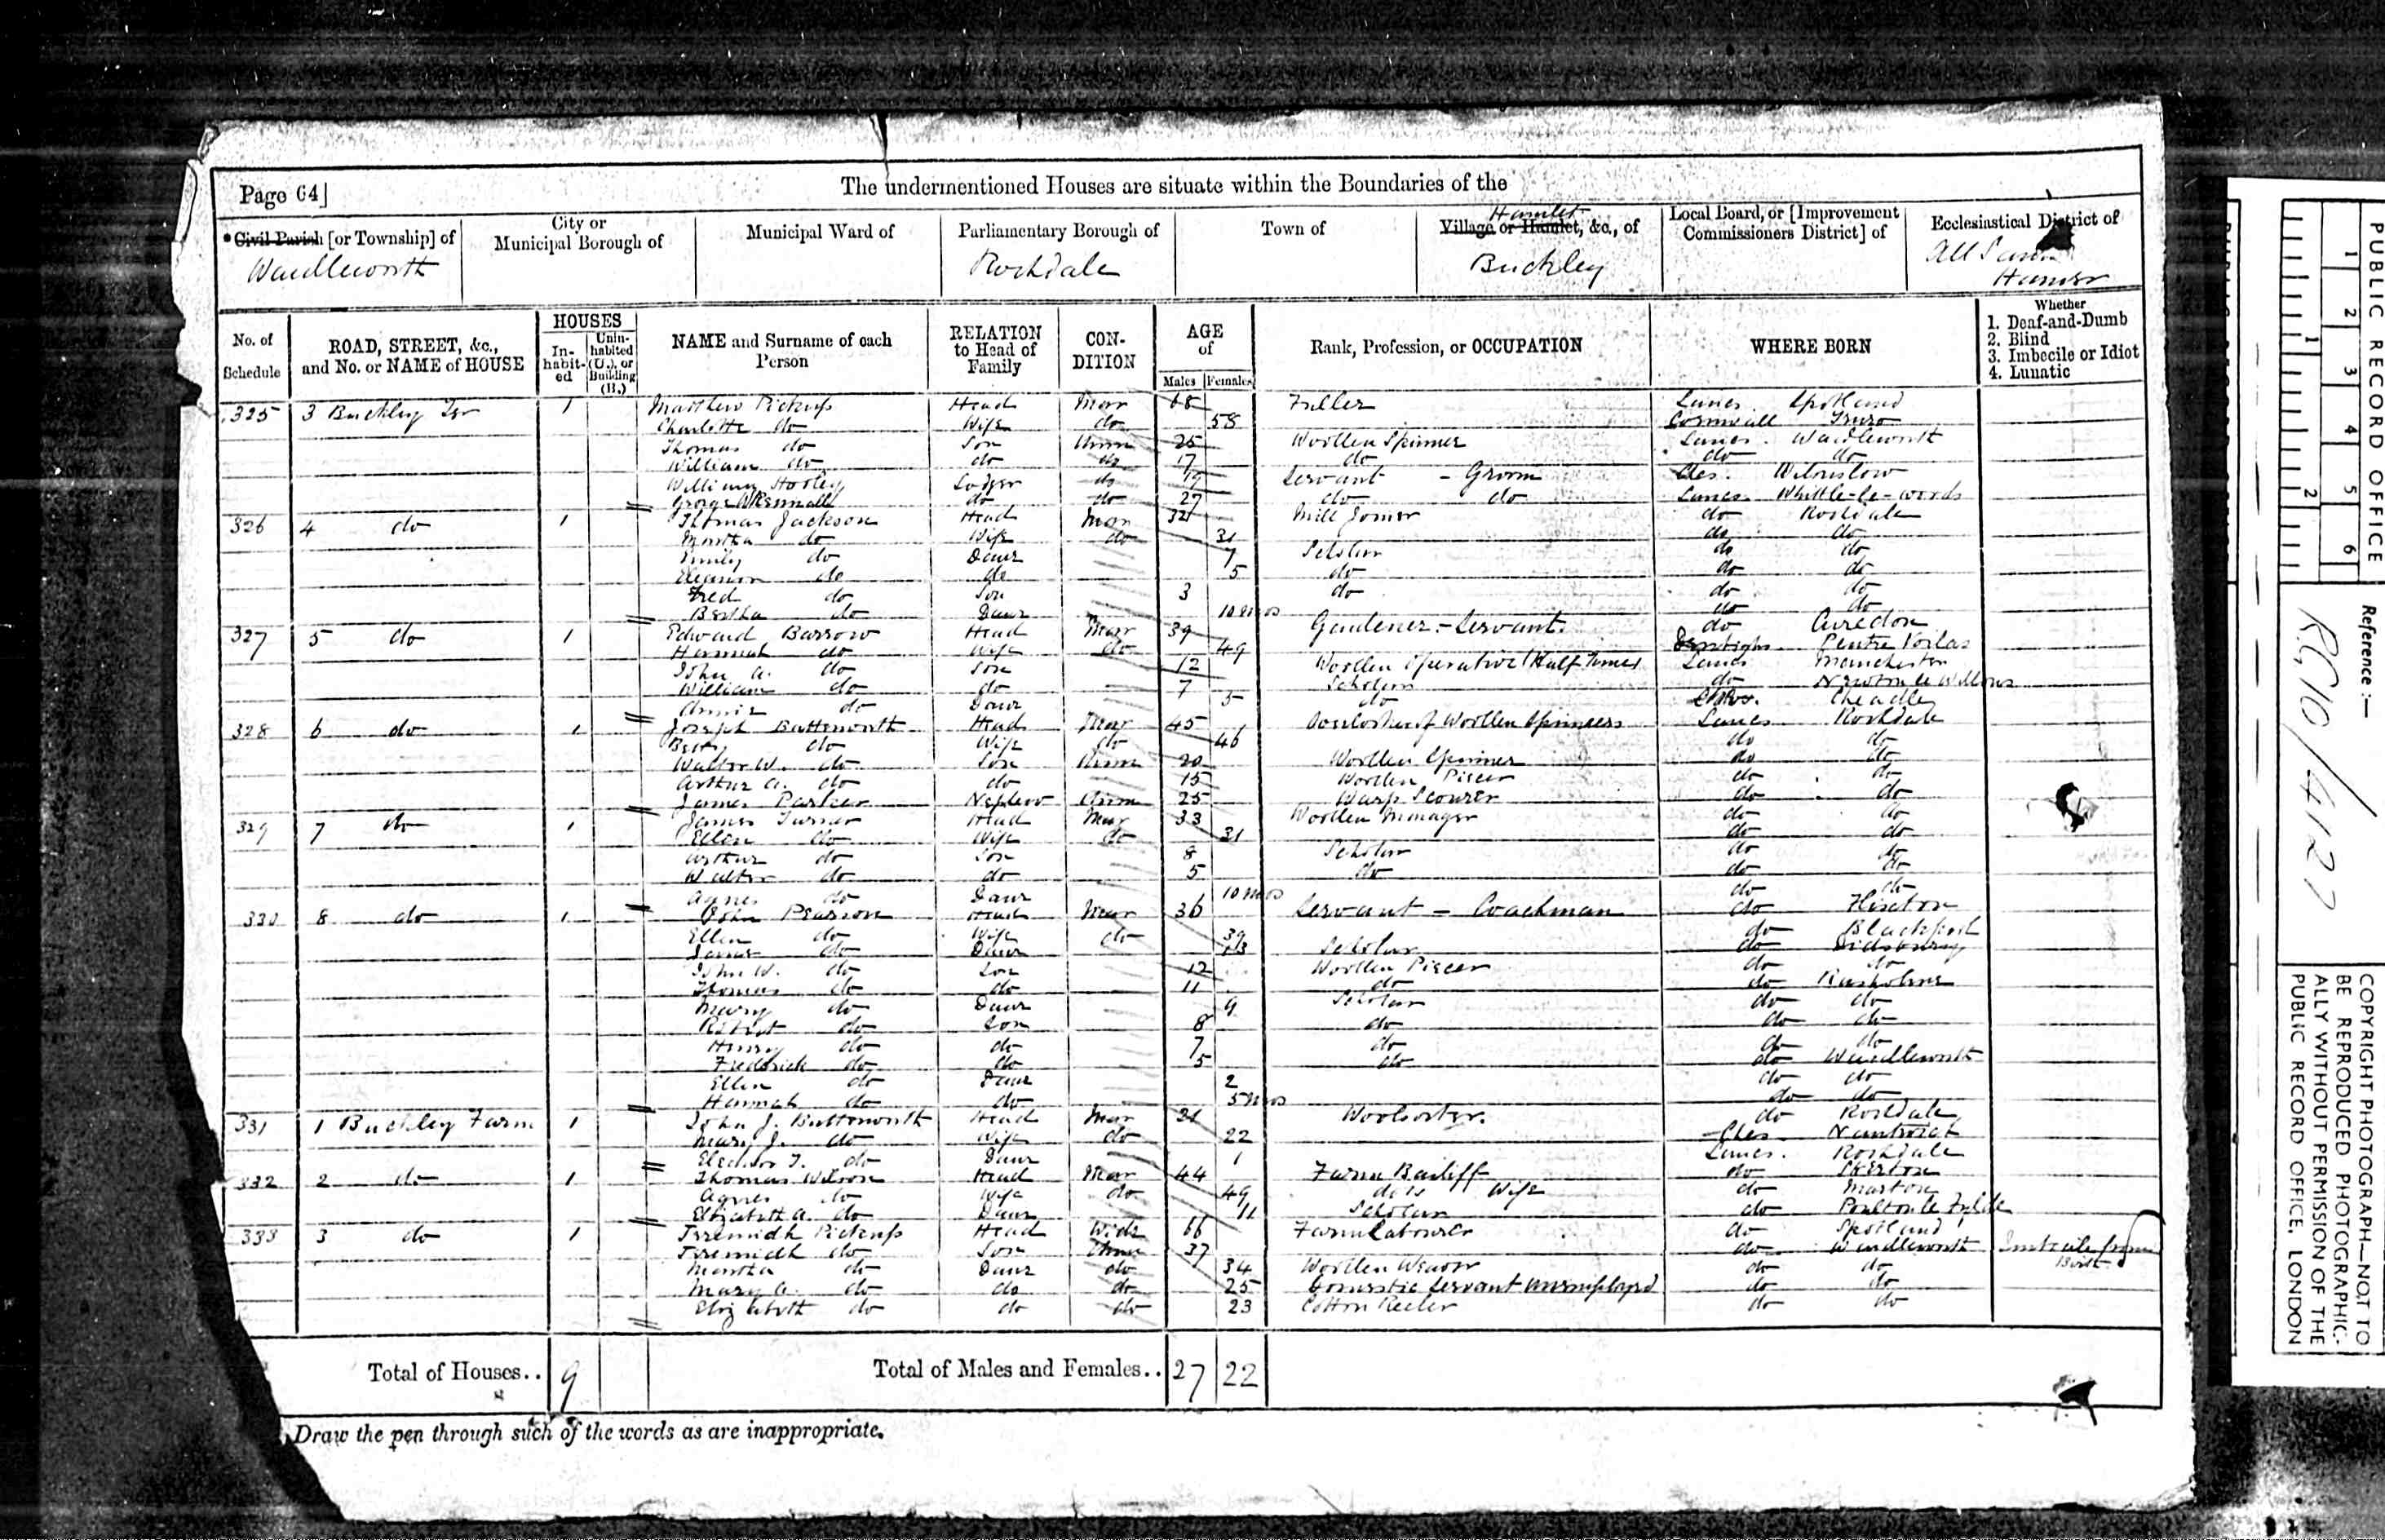 Page 64]
The undermentioned Houses are situate within the Boundaries of the
* Civil Parish [or Township] of
City or Municipal Borough of
Municipal Ward of
Parliamentary Borough of
Town of
Hamlet
Village or Hamlet, &c., of
Local Board, or [Improvement Commissioners District] of
Ecclesiastical District of
Wardleworth
Rochdale
Buckley
All
Hamer
No. of Schedule
ROAD, STREET, &c., and No. or NAME of HOUSE
HOUSES
In-habit-ed
Unin-habited (U.), or Building (B.)
NAME and Surname of each Person
RELATION to Head of Family
CON-DITION
AGE of
Males
Females
Rank, Profession, or OCCUPATION
WHERE BORN
Whether
1. Deaf-and-Dumb
2. Blind
3. Imbecile or Idiot
4. Lunatic
325 3 Buckley Ter 1 Matthew Pickup Head Mar 68 Fuller Lancs. Spotland
Charlotte do Wife do 58 Cornwall Truro
Thomas do Son Unm 25 Woollen Spinner Lancs. Wardleworth
William do do do 17 do do do
William Hooley Lodger do 19 Servant - Groom Ches. Wilmslow
George do do 27 do do Lancs. Whittle-le-woods
326 4 do 1 Thomas Jackson Head Mar 32 Mill Joiner do Rochdale
Martha do Wife do 31 do do
Emily do Daur 7 Scholar do do
Eleanor do do 5 do do do
Fred do Son 3 do do do
Bertha do Daur 10 mos do do
327 5 do 1 Edward Barrow Head Mar 39 Gardener - Servant. do
Hannah do Wife do 49 Denbighs Pentre Voilas
John A. do Son 12 Woollen Operative (Half Time) Lancs Manchester
William do do 7 Scholar do Newton le Willows
Annie do Daur 5 do Cheadle
328 6 do 1 Joseph Butterworth Head Mar 45 Overlooker of Woollen Spinners Lancs Rochdale
do Wife do 46 do do
Walter W. do Son Unm 20 Woollen Spinner do do
Arthur A. do do 15 Woollen Piecer do do
James Parker Nephew Unm 25 Warp Scourer do do
329 7 do 1 James Turner Head Mar 33 Woollen Manager do do
Ellen do Wife do 31 do do
Arthur do Son 8 Scholar do do
Walter do do 5 do do do
Agnes do Daur 10 mos do do
330 8 do 1 John Pearson Head Mar 36 Servant - Coachman do Flixton
Ellen do Wife do 39 do Blackpool
do Daur 13 Scholar do Didsbury
John W. do Son 12 Woollen Piecer do do
Thomas do do 11 do do Rusholme
Mary do Daur 9 Scholar do do
Robert do Son 8 do do do
Henry do do 7 do do do
Frederick do do 5 do do Wardleworth
Ellen do Daur 2 do do
Hannah do do 5 mos do do
331 1 Buckley Farm 1 John J. Butterworth Head Mar 21 Woolsorter. do Rochdale
Mary J. do Wife do 22 Ches. Nantwich
do Daur 1 Lancs. Rochdale
332 2 do 1 Thomas Wilson Head Mar 44 Farm Bailiff do Skerton
Agnes do Wife do 49 do's Wife do Marton
Elizabeth A. do Daur 11 Scholar do Poulton le Fylde
333 3 do 1 Jeremiah Pickup Head Widr 66 Farm Labourer do Spotland
Jeremiah do Son Unm 37 do Wardleworth Imbecile from Birth
Martha do Daur do 34 Woollen Weaver do do
Mary A. do do do 25 Domestic Servant unemployed do do
Elizabeth do do do 23 Cotton Reeler do do
Total of Houses.. 9
Total of Males and Females.. 27 22
Draw the pen through such of the words as are inappropriate.
PUBLIC RECORD OFFICE
1 2 3 4 5 6
1 2
Reference :-
R.G. 10/4122
COPYRIGHT PHOTOGRAPH—NOT TO
BE REPRODUCED PHOTOGRAPHIC-
ALLY WITHOUT PERMISSION OF THE
PUBLIC RECORD OFFICE, LONDON